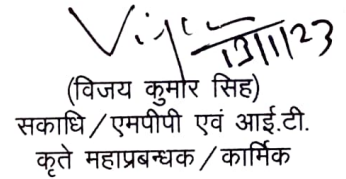 Vijay
13/11/23
(विजय कुमार सिंह)
सकाधि/एमपीपी एवं आई.टी.
कृते महाप्रबन्धक/कार्मिक